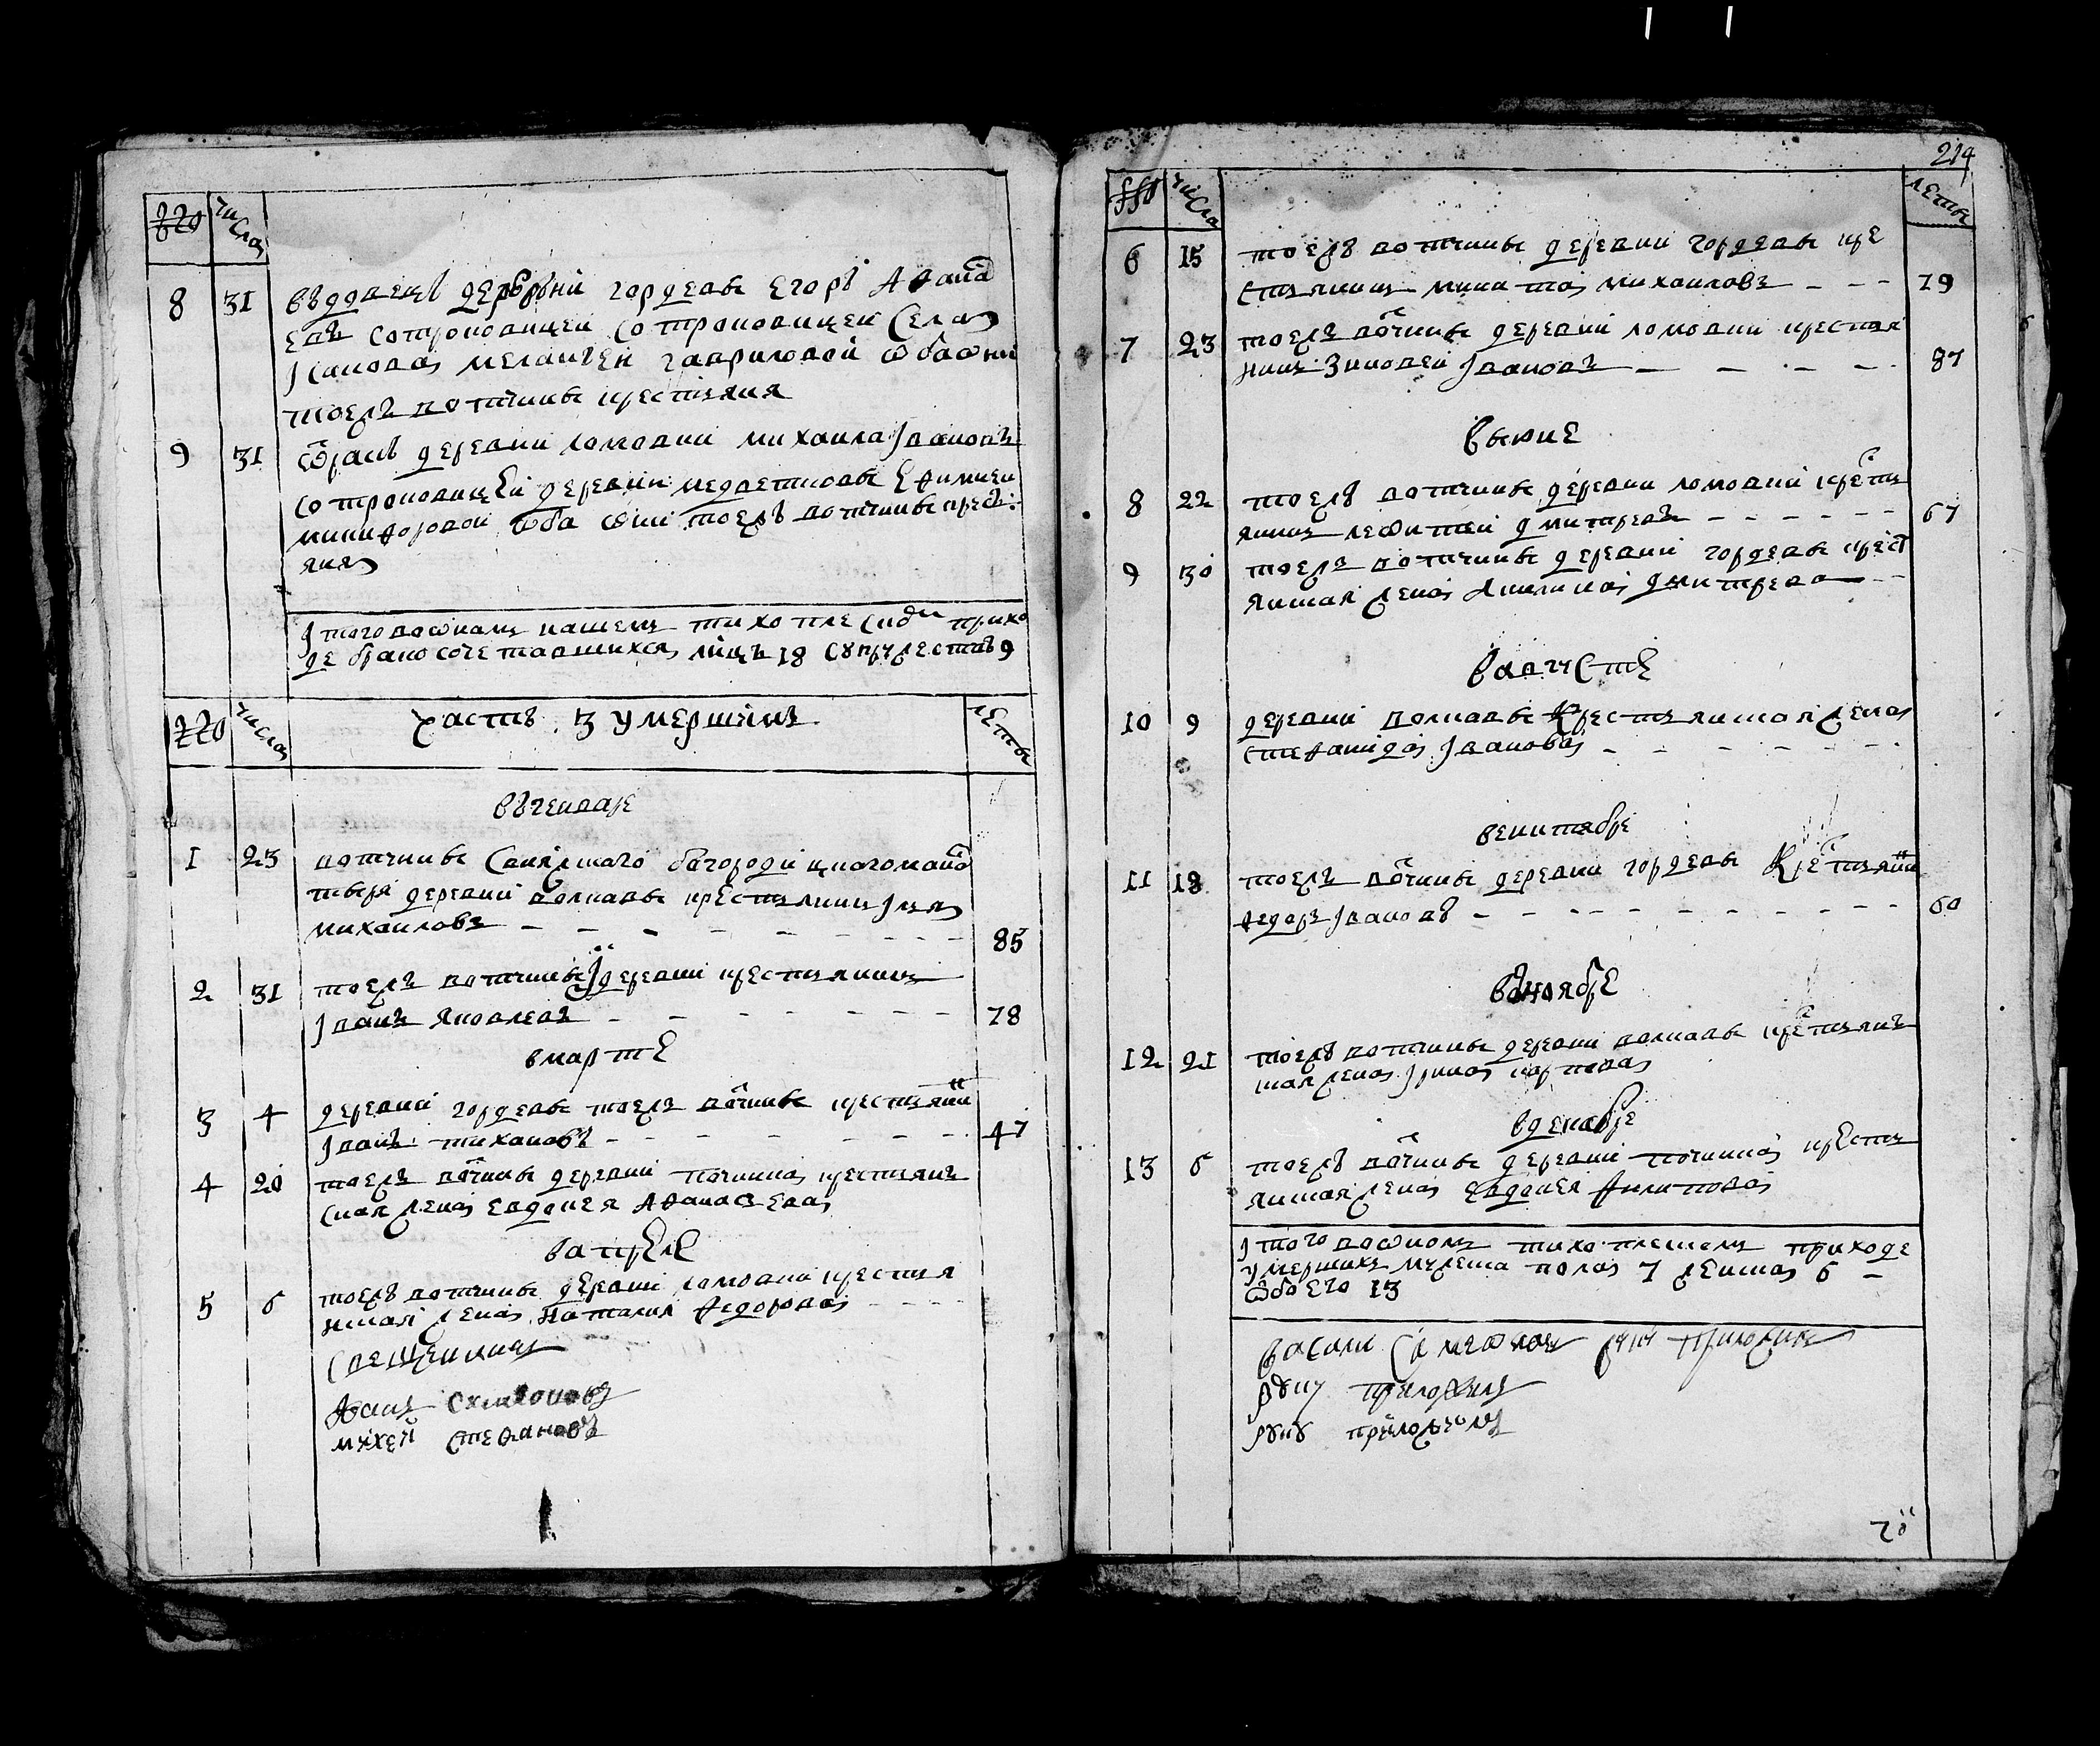 числа
8 31 вдовецъ деревни гордевы Егоръ Афана
евъ сотроковицеи сотроковицеи села
Исакова меланьеи гавриловои ѡба ѡни
тоежъ вотчины крестьяня
9 31 ѡтракъ деревни ломовки михаила Ивановъ
сотроковицеи деревни медветковы Ефимиеи
никифоровои ѡба ѡни тоежъ вотчины крест:
яня
Итого во ѡномъ нашемъ тихо плескомъ прихо
де брако сочетавшихся лицъ 18 супружествъ 9
числа часть 3 умершимъ леты
въ генваре
1 23 вотчины Свияжского бгородицкого мана
тыря деревни волкавы крестьянинъ Илья
михаиловъ 85
2 31 тоежъ вотчины деревни крестьянинъ
Иванъ яковлевъ 78
в марте
3 4 деревни гордевы тоежъ вотчины крестьянин
Иванъ тихановъ 47
4 20 тоежъ вотчины деревни починка крестьянъ
ская жена евдокея Афанасьева
в апреле
5 6 тоежъ вотчины деревни ломовки крестья
нская жена Наталия федорова
Священникъ
Иванъ
михей стефановъ
214
числа леты
6 15 тоежъ вотчины деревни гордевы кре
стьянинъ никита михаиловъ 79
7 23 тоежъ вотчины деревни ломовки крестья
нинъ Зиновеи Ивановъ 87
в июне
8 22 тоежъ вотчины деревни ломовки кресть
янинъ леѡнтеи дмитревъ 67
9 30 тоежъ вотчины деревни гордевы крест
янская жена Акилина дмитрева
в августе
10 9 деревни волкавы крестьянская жена
стефанида Иванова
сентябре
11 18 тоежъ вотчины деревни гордевы крестьянин
федоръ Ивановъ 60
в ноябре
12 21 тоежъ вотчины деревни волкавы крестьянъ
ская жена Ирина карпова
в декабре
13 6 тоежъ вотчины деревни починка кресть
янская жена евдокея филипова
Итого во ѡномъ тихо плескомъ приходе
умершихъ мужеска пола 7 женска 6
ѡбоего 13
васили руки приложилъ
руку приложилъ
руку приложилъ